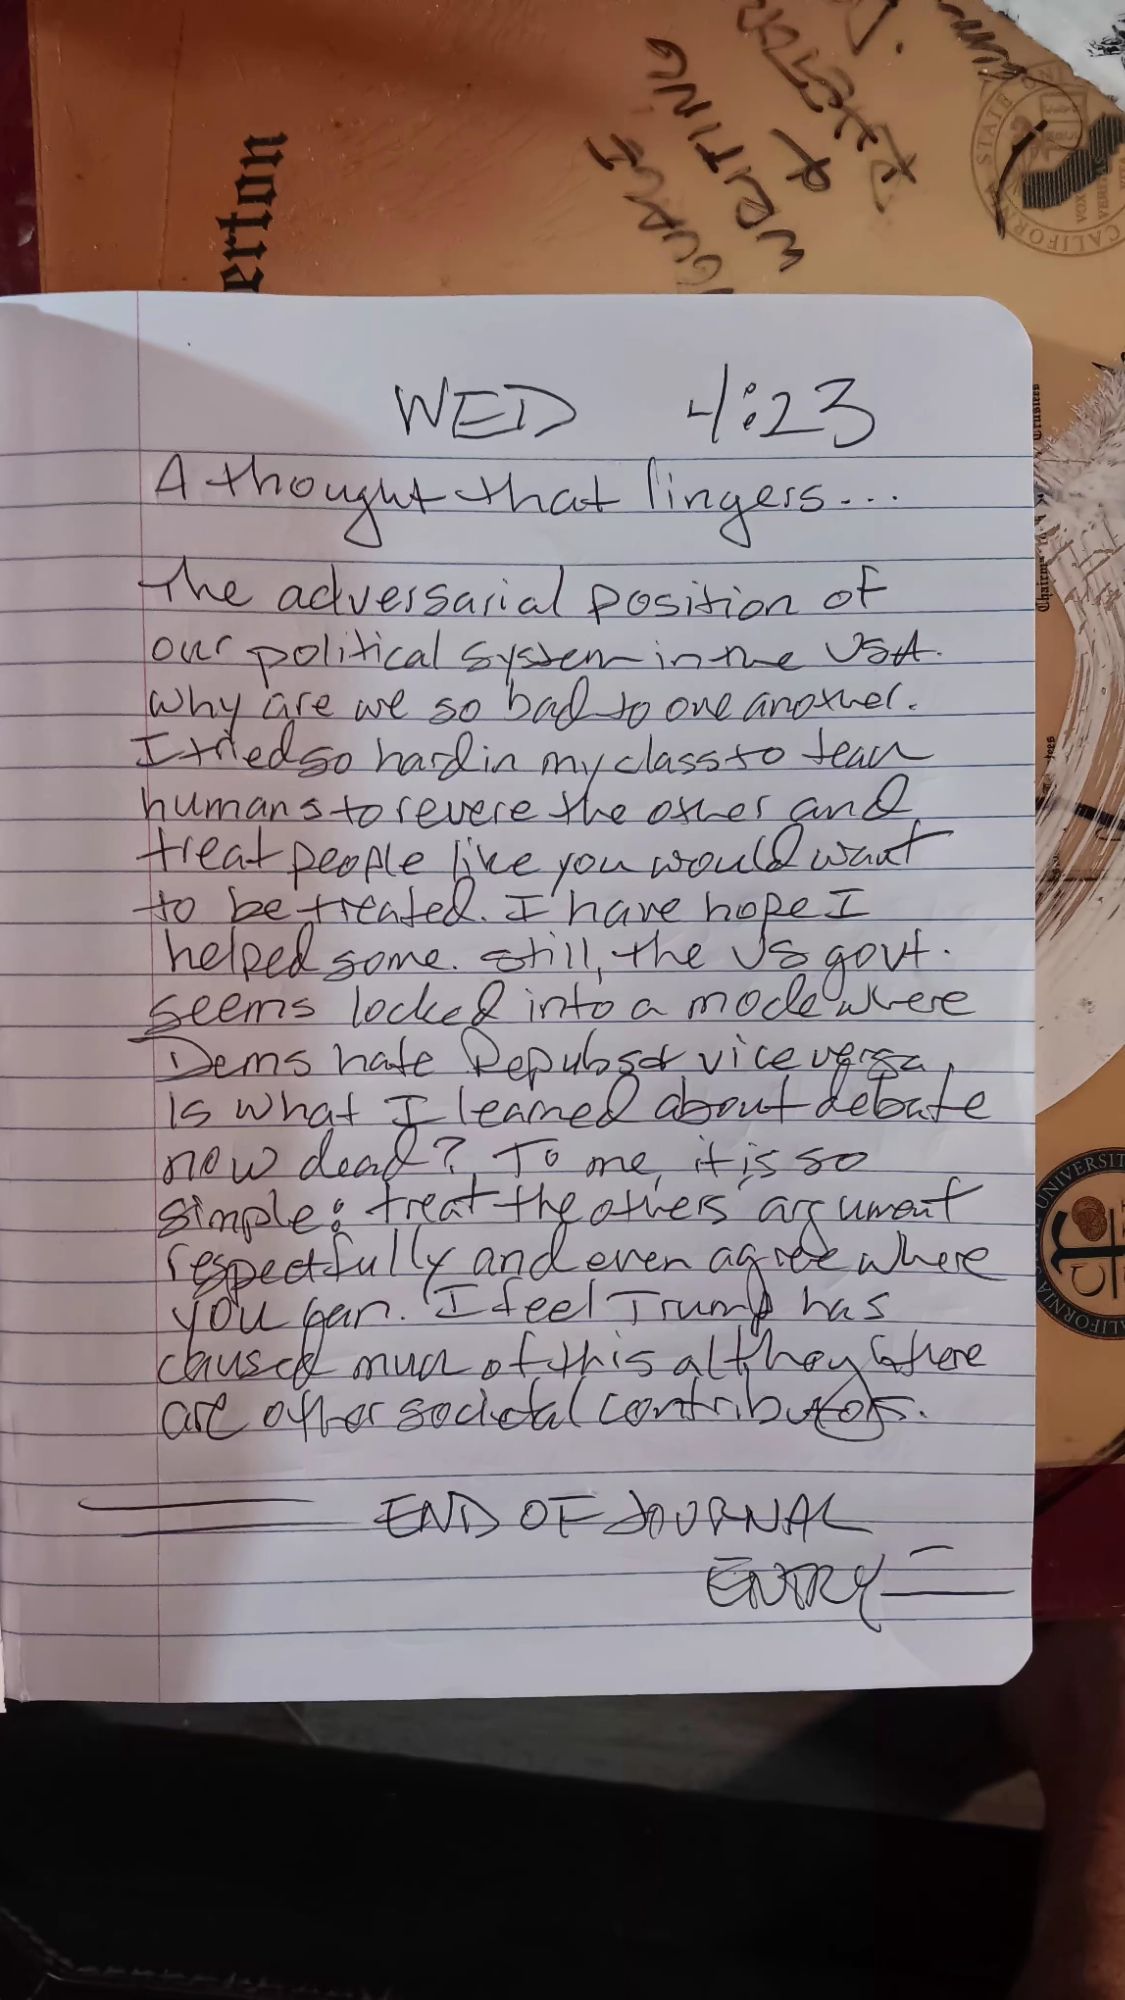 erton
WRITING
&
STATE
CALIFORNIA
VOX
VERITAS
WED 4:23
A thought that lingers...
The adversarial position of
our political system in the USA.
Why are we so bad to one another.
I tried so hard in my class to teach
humans to revere the other and
treat people like you would want
to be treated. I have hope I
helped some. Still, the US govt.
seems locked into a mode where
Dems hate Repubs & vice versa.
Is what I learned about debate
now dead? To me, it is so
simple: treat the others' argument
respectfully and even agree where
you can. I feel Trump has
caused much of this although there
are other societal contributors.
END OF JOURNAL
ENTRY
Trustees
UNIVERSITY
CALIFORNIA